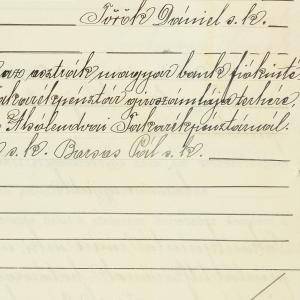 Török Dániel s. k.
az osztrák magyar bank fiókinté
takarékpénztár giroszámlája terhére,
Alsólendvai Takarékpénztárnál.
s. k. Barcas Pál s. k.